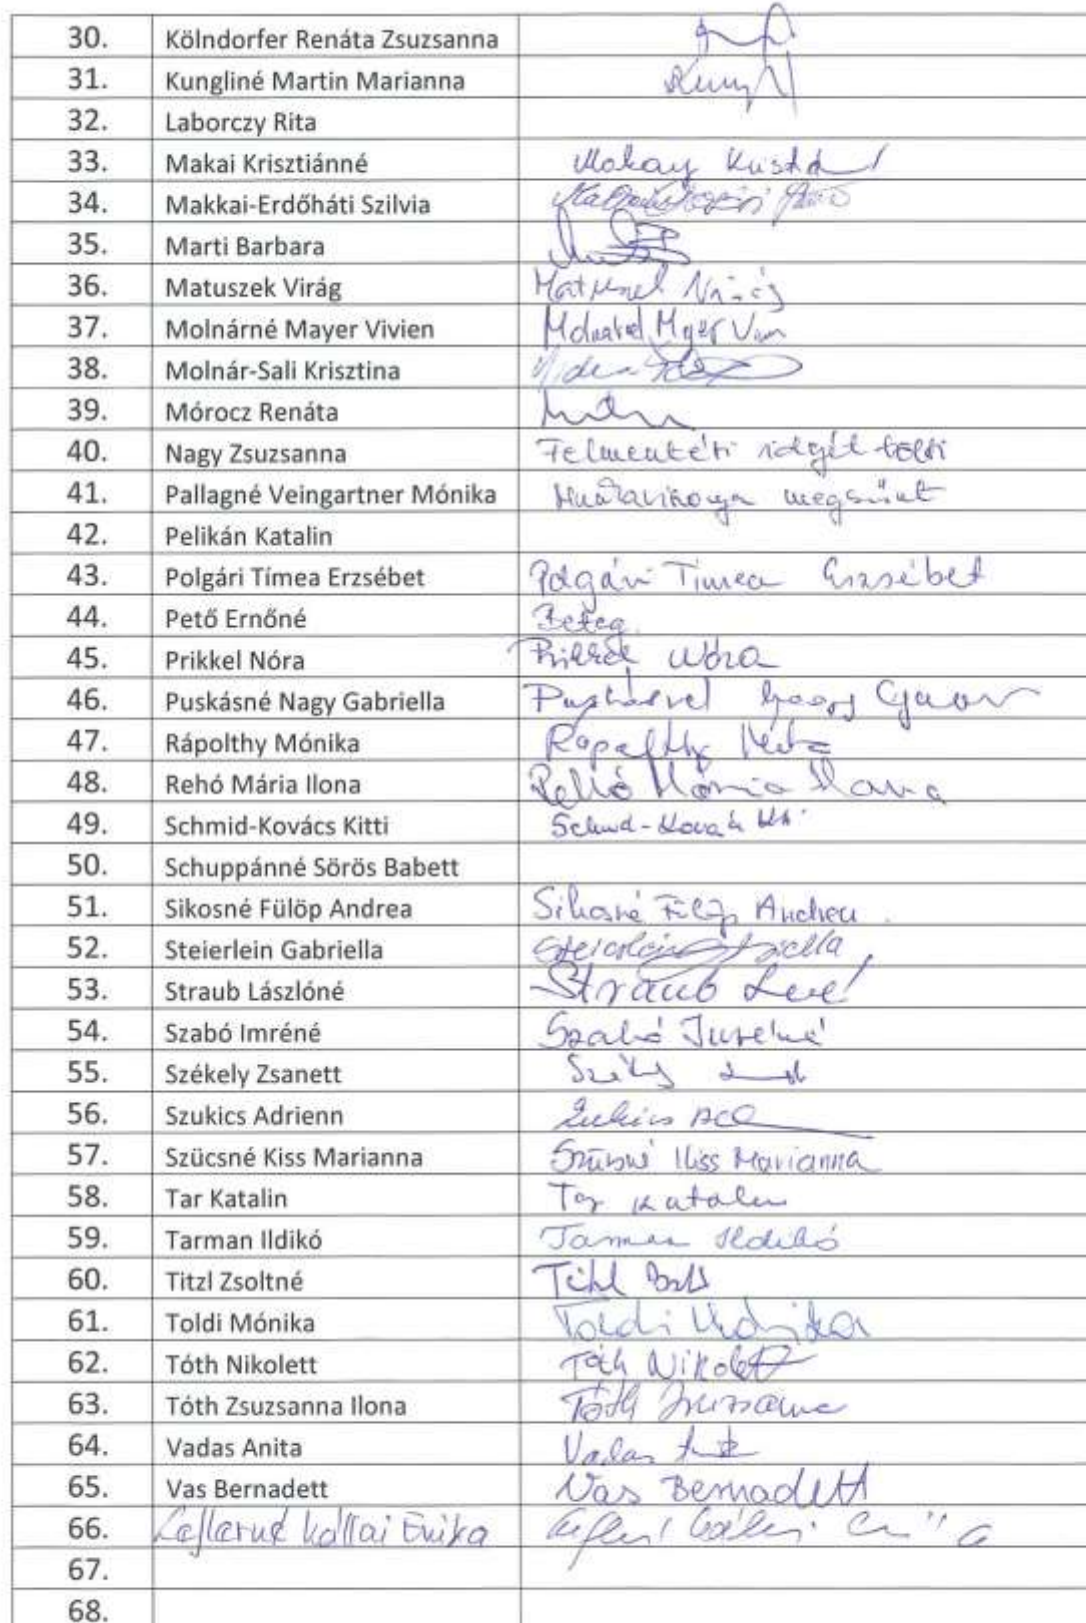 30. Kölndorfer Renáta Zsuzsanna
31. Kungliné Martin Marianna
32. Laborczy Rita
33. Makai Krisztiánné
34. Makkai-Erdőháti Szilvia
35. Marti Barbara
36. Matuszek Virág
37. Molnárné Mayer Vivien
38. Molnár-Sali Krisztina
39. Mórocz Renáta
40. Nagy Zsuzsanna Felmentési idejét tölti
41. Pallagné Veingartner Mónika Munkaviszonya megszűnt
42. Pelikán Katalin
43. Polgári Tímea Erzsébet Polgári Timea Erzsébet
44. Pető Ernőné Beteg.
45. Prikkel Nóra Prikkel Nóra
46. Puskásné Nagy Gabriella Puskásné Nagy
47. Rápolthy Mónika Rápolthy
48. Rehó Mária Ilona Rehó Mária Ilona
49. Schmid-Kovács Kitti Schmid-Kovács
50. Schuppánné Sörös Babett
51. Sikosné Fülöp Andrea Sikosné Fülöp Andrea
52. Steierlein Gabriella Steierlein
53. Straub Lászlóné Straub
54. Szabó Imréné Szabó Imréné
55. Székely Zsanett
56. Szukics Adrienn
57. Szücsné Kiss Marianna Szücsné Kiss Marianna
58. Tar Katalin Tar Katalin
59. Tarman Ildikó Tarman Ildikó
60. Titzl Zsoltné Titzl
61. Toldi Mónika Toldi Mónika
62. Tóth Nikolett Tóth Nikolett
63. Tóth Zsuzsanna Ilona Tóth Zsuzsanna
64. Vadas Anita Vadas Anita
65. Vas Bernadett Vas Bernadett
66. Kállai Enika
67.
68.